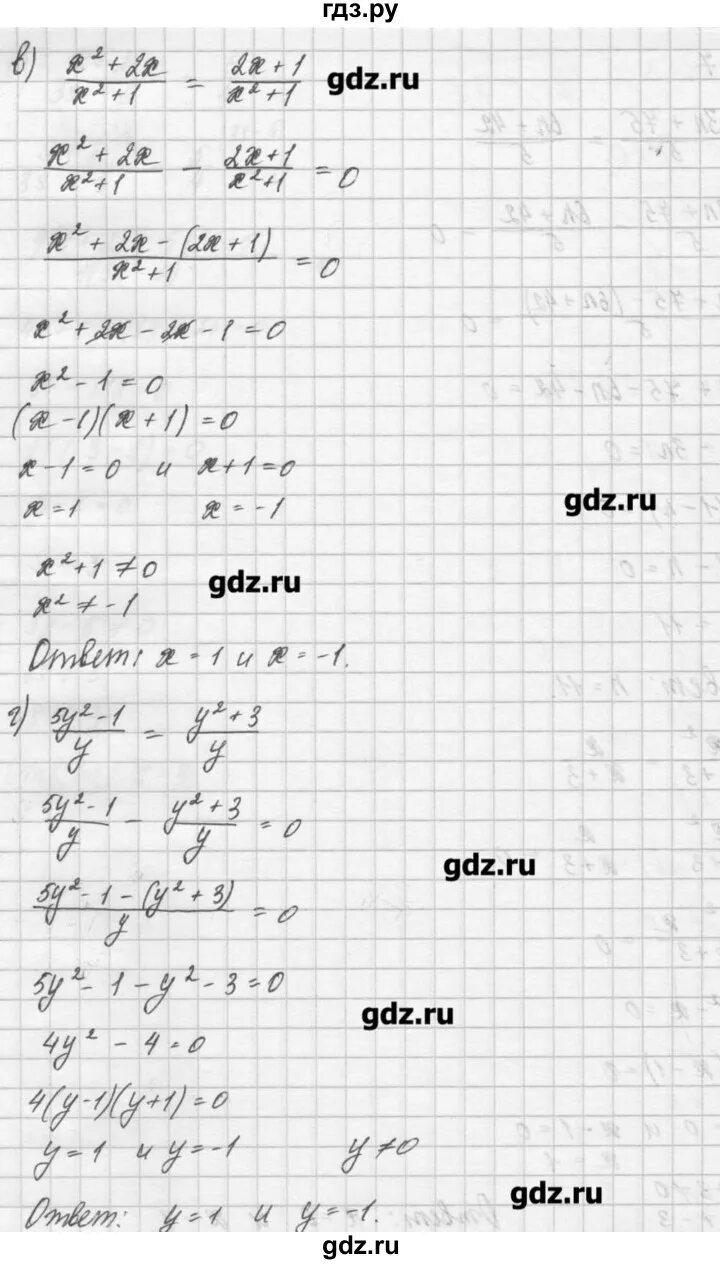 гдз.ру
в) (x² + 2x)/(x² + 1) = (2x + 1)/(x² + 1)
gdz.ru
(x² + 2x)/(x² + 1) − (2x + 1)/(x² + 1) = 0
(x² + 2x − (2x + 1))/(x² + 1) = 0
x² + 2x − 2x − 1 = 0
x² − 1 = 0
(x − 1)(x + 1) = 0
x − 1 = 0 и x + 1 = 0
x = 1 x = −1
gdz.ru
x² + 1 ≠ 0
gdz.ru
x² ≠ −1
Ответ: x = 1 и x = −1.
г) (5y² − 1)/y = (y² + 3)/y
(5y² − 1)/y − (y² + 3)/y = 0
gdz.ru
(5y² − 1 − (y² + 3))/y = 0
5y² − 1 − y² − 3 = 0
gdz.ru
4y² − 4 = 0
4(y − 1)(y + 1) = 0
y = 1 и y = −1 y ≠ 0
gdz.ru
Ответ: y = 1 и y = −1.
gdz.ru